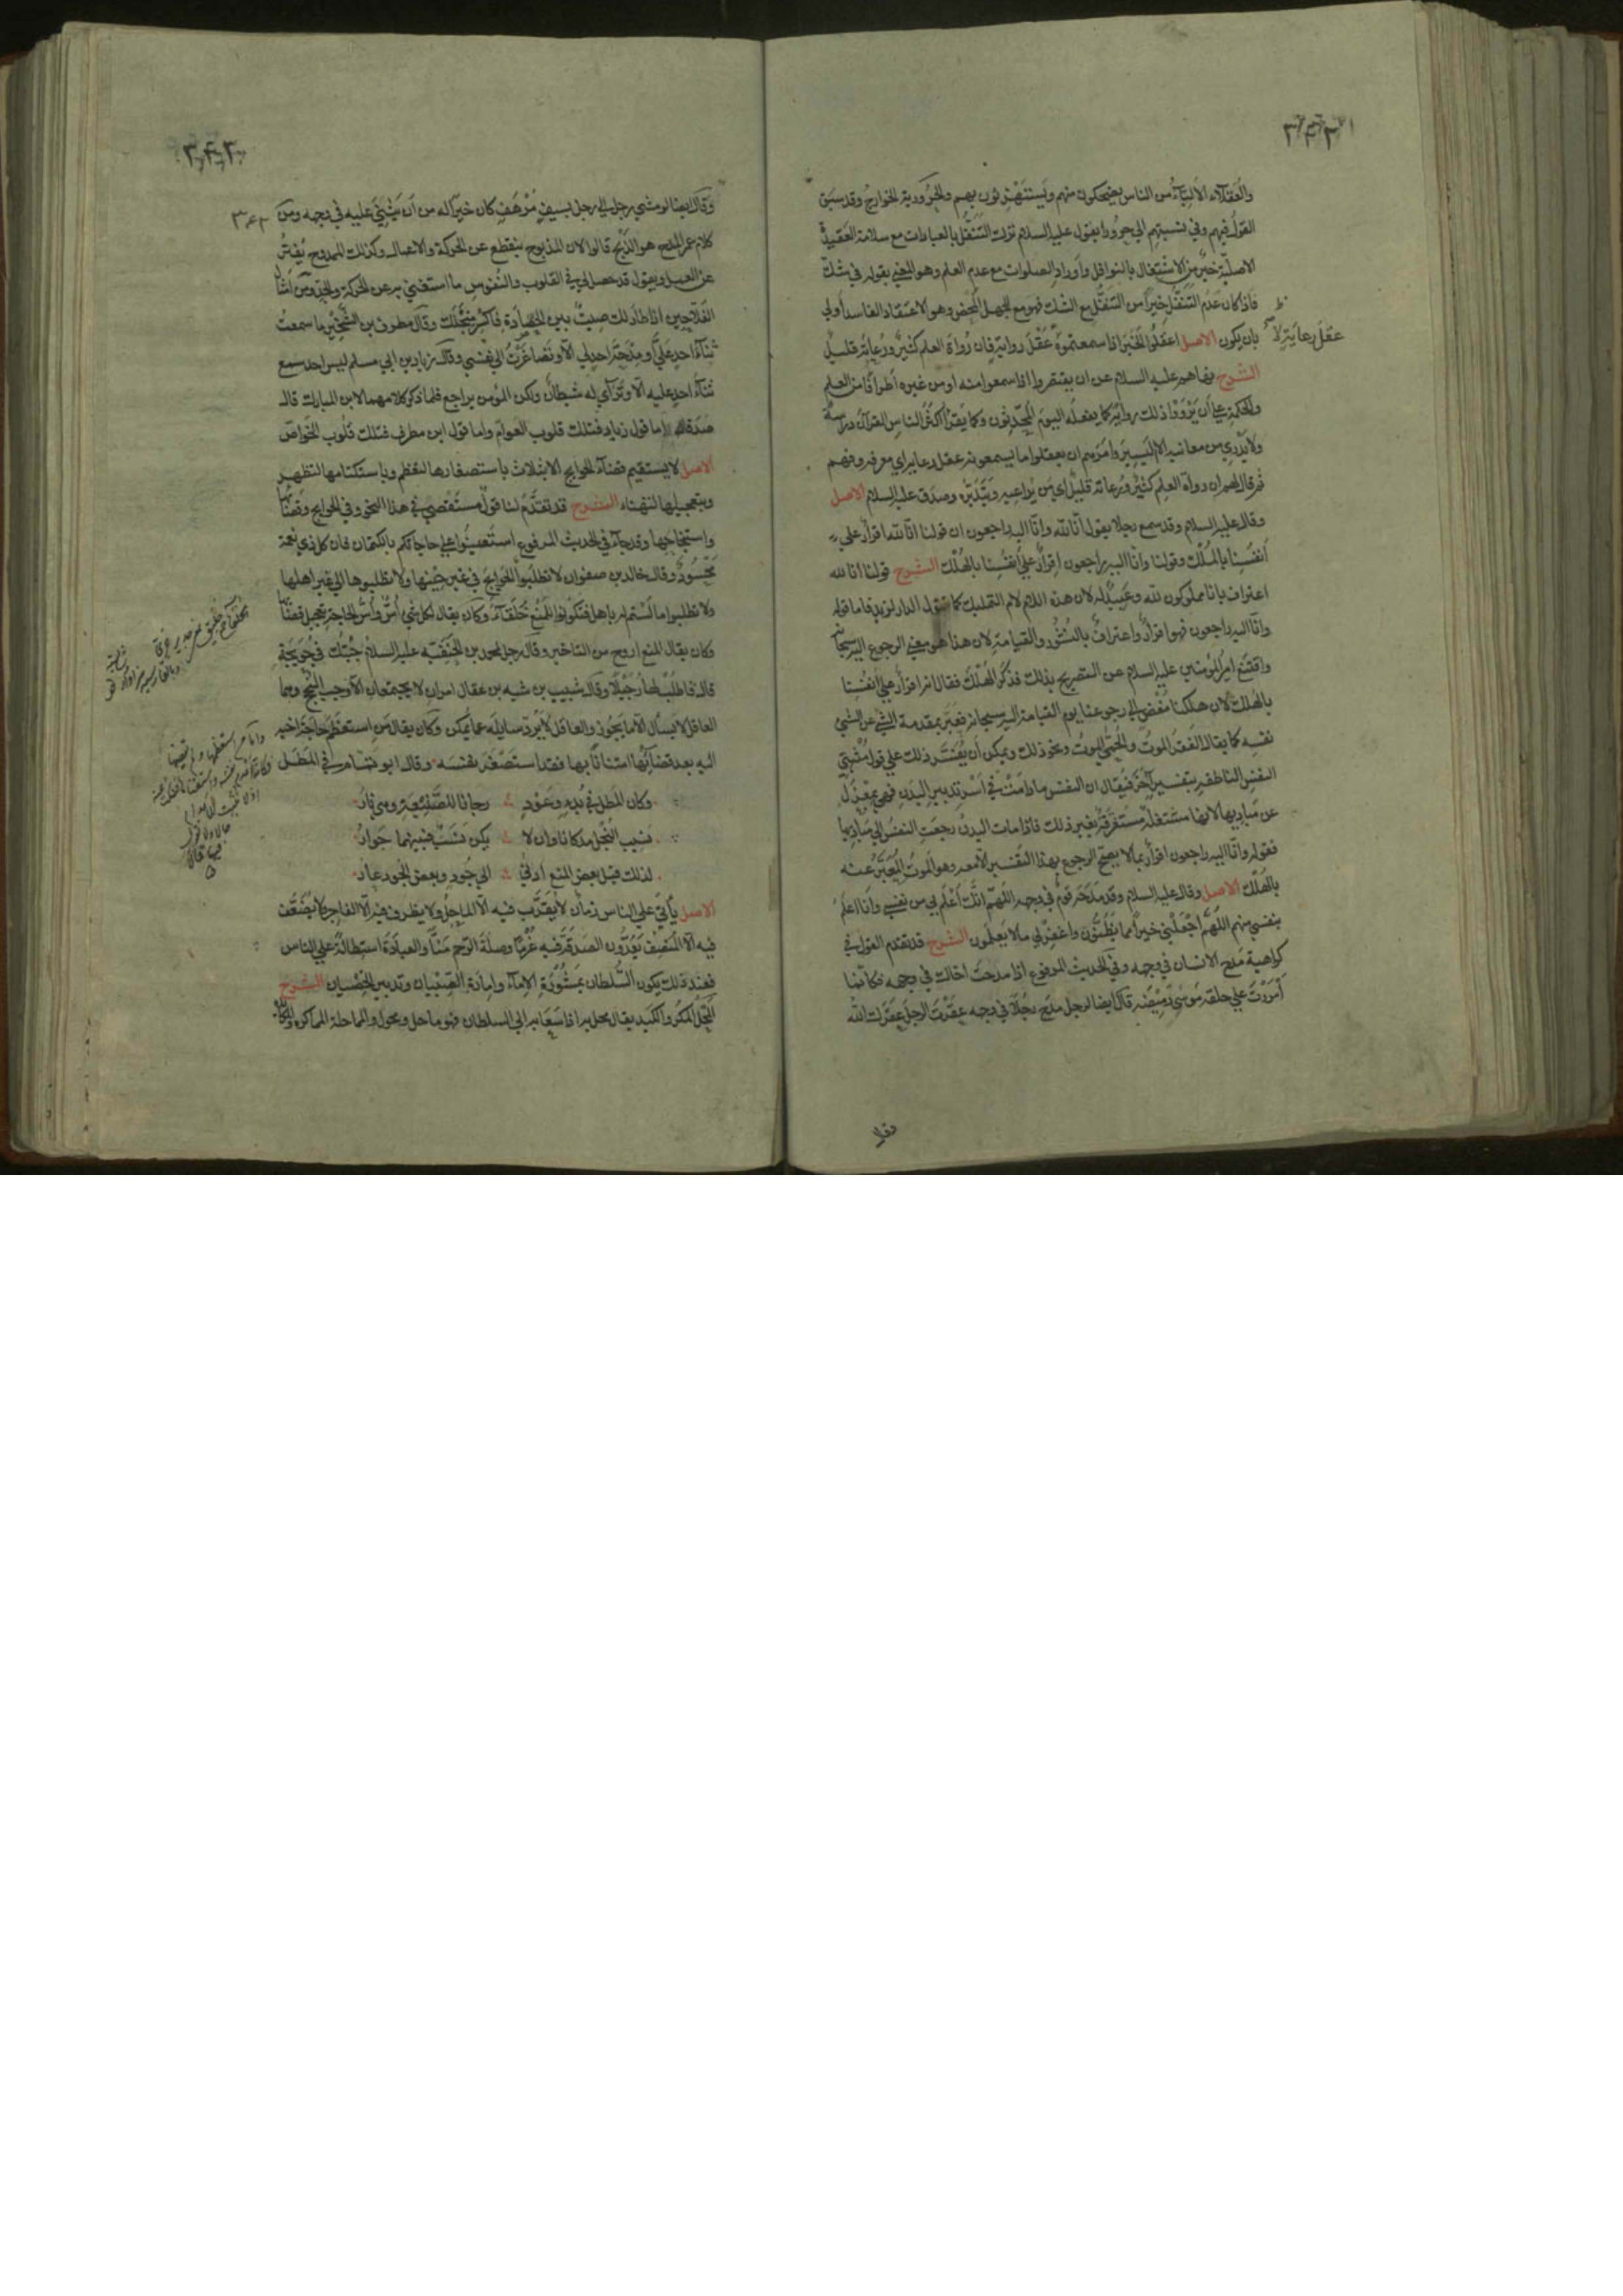 والعقلاء الالبّاء من الناس يضحكون منهم ويستهزئون بهم والحرورية الخوارج وقد سبق
القول فيهم وفي نسبتهم الى حروراء يقول عليه السلام ترك التنفل بالعبادات مع سلامة العقيدة
الاصلية خير من الاشتغال بالنوافل واوراد الصلوات مع عدم العلم وهو المعني بقوله في شك
فاذا كان عدم التنفل خيرا من التنفل مع الشك فهو مع الجهل المحض وهو الاعتقاد الفاسد اولى
بان يكون الاصل اعقلوا الخبر اذا سمعتموه عقل رواية فان رواة العلم كثير ورعاته قليل
عقل رعاية لا
الشرح نهاهم عليه السلام عن ان يقتصروا اذا سمعوا منه او من غيره اطرافا من العلم
والحكمة على ان يرووا ذلك رواية كما يفعله اليوم المحدثون وكما يقرأ اكثر الناس القرآن دراسة
ولا يدري من معانيه الا اليسير وامرهم ان يعقلوا ما يسمعونه عقل رعاية اي معرفة وفهم
ثم قال لهم ان رواة العلم كثير ورعاته قليل اي من يراعيه ويتدبره وصدق عليه السلام الاصل
وقال عليه السلام وقد سمع رجلا يقول انا لله وانا اليه راجعون ان قولنا انا لله اقرار على
انفسنا بالملك وقولنا وانا اليه راجعون اقرار على انفسنا بالهلك الشرح قولنا انا لله
اعتراف بانا مملوكون لله وعبيد له لان هذه اللام لام التمليك كما تقول الدار لزيد فاما قوله
وانا اليه راجعون فهو اقرار واعتراف بالنشور والقيامة لان هذا هو معنى الرجوع اليه سبحانه
واقتنع امير المؤمنين عليه السلام عن التصريح بذلك فذكر الهلك فقال انه اقرار على انفسنا
بالهلك لان هلكنا مفض الى رجوعنا يوم القيامة اليه سبحانه فعبر بمقدمة الشي عن الشي
نفسه كما يقال الفقر الموت والحمى الموت ونحو ذلك ويمكن ان يفسر ذلك على قول مثبتي
النفس الناطقة بتفسير آخر فيقال ان النفس ما دامت في اسر تدبير البدن فهي بمعزل
عن مباديها لانها مشتغلة مستغرقة بغير ذلك فاذا مات البدن رجعت النفس الى مباديها
فقوله وانا اليه راجعون اقرار بما لا يصح الرجوع بهذا التفسير الا معه وهو الموت المعبر عنه
بالهلك الاصل وقال عليه السلام وقد مدحه قوم في وجهه اللهم انك اعلم بي من نفسي وانا اعلم
بنفسي منهم اللهم اجعلني خيرا مما يظنون واغفر لي ما لا يعلمون الشرح قد تقدم القول في
كراهية مدح الانسان في وجهه وفي الحديث المرفوع اذا مدحت اخاك في وجهه فكانما
امررت على حلقه موسى رميضة قال ايضا لرجل مدح رجلا في وجهه عقرت الرجل عقرك الله
وقال ايضا لو مشى رجل الى رجل بسيف مرهف كان خيرا له من ان يثني عليه في وجهه ومن
كلام عمر المدح هو الذبح قالوا لان المذبوح ينقطع عن الحركة والاعمال وكذلك الممدوح يفتر
عن العمل ويقول قد حصل لي في القلوب والنفوس ما استغني به عن الحركة والجد ومن امثال
الفلاحين اذا طار لك صيت بين الحصادة فاكسر منجلك وقال مطرف بن الشخير ما سمعت
ثناء احد علي او مدحة احد لي الا وتصاغرت الى نفسي وقال زياد بن ابي مسلم ليس احد سمع
ثناء احد عليه الا وتراءى له شيطان ولكن المؤمن يراجع فلما ذكر كلامهما لابن المبارك قال
صدقا اما قول زياد فتلك قلوب العوام واما قول ابن مطرف فتلك قلوب الخواص
الاصل لا يستقيم قضاء الحوائج الا بثلاث باستصغارها لتعظم وباستكتامها لتظهر
وبتعجيلها لتهنا الشرح قد تقدم لنا قول مستقصى في هذا النحو وفي الحوايج وقضائها
واستنجاحها وقد جاء في الحديث المرفوع استعينوا على حاجاتكم بالكتمان فان كل ذي نعمة
محسود وقال خالد بن صفوان لا تطلبوا الحوايج في غير حينها ولا تطلبوها الى غير اهلها
ولا تطلبوا ما لستم له باهل فتكونوا للمنع خلقاء وكان يقال لكل شي اس واس الحاجة تعجيل قضائها
وكان يقال المنع اروح من التاخير وقال رجل لمحمد بن الحنفية عليه السلام جئتك في حويجة
قال فاطلب لها رجيلا وقال شبيب بن شبه بن عقال امران لا يجتمعان الا وجب النجح وهما
العاقل لا يسأل الا ما يجوز والعاقل لا يرد سايله عما يمكن وكان يقال من استعظم حاجة اخيه
اليه بعد قضائها امتنانا بها فقد استصغر نفسه وقال ابو تمام في المطل
وكان المطل في بدء وعود دخانا للصنيعة وهي نار
نسيب البخل مذ كانا وان لا يكن نسب فبينهما جوار
لذلك قيل بعض المنع ادنى الى جود وبعض الجود عار
الاصل يأتي على الناس زمان لا يقرب فيه الا الماحل ولا يظرف فيه الا الفاجر ولا يضعف
فيه الا المنصف يعدون الصدقة فيه غرما وصلة الرحم منا والعبادة استطالة على الناس
فعند ذلك يكون السلطان بمشورة الاماء وامارة الصبيان وتدبير الخصيان الشرح
المحل المكر والكيد يقال محل به اذا سعى به الى السلطان فهو ماحل ومحول والمماحلة المماكرة والمكايدة